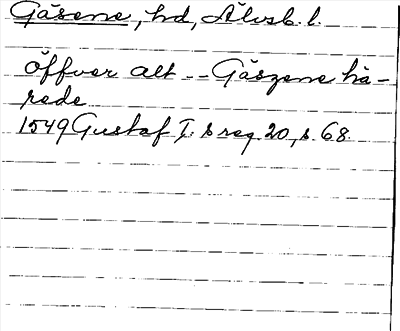 Gäsene, hd, Älvsb. l.
öffver alt -- Gäszene hä-
rede
1549 Gustaf I:s reg. 20, s. 68